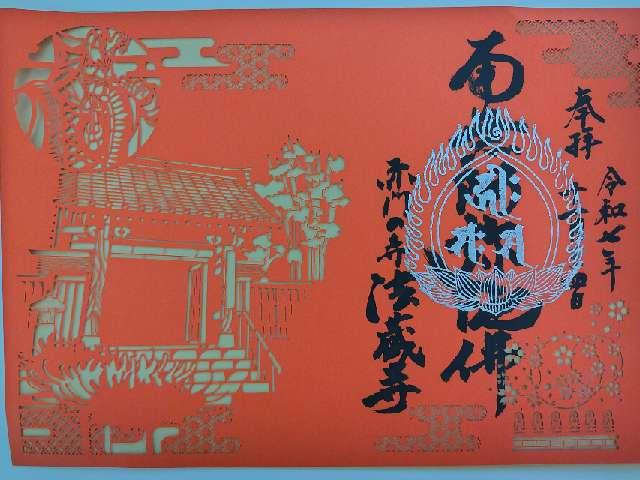 奉拝
令和七年
南無阿弥陀佛
赤門の寺 法蔵寺